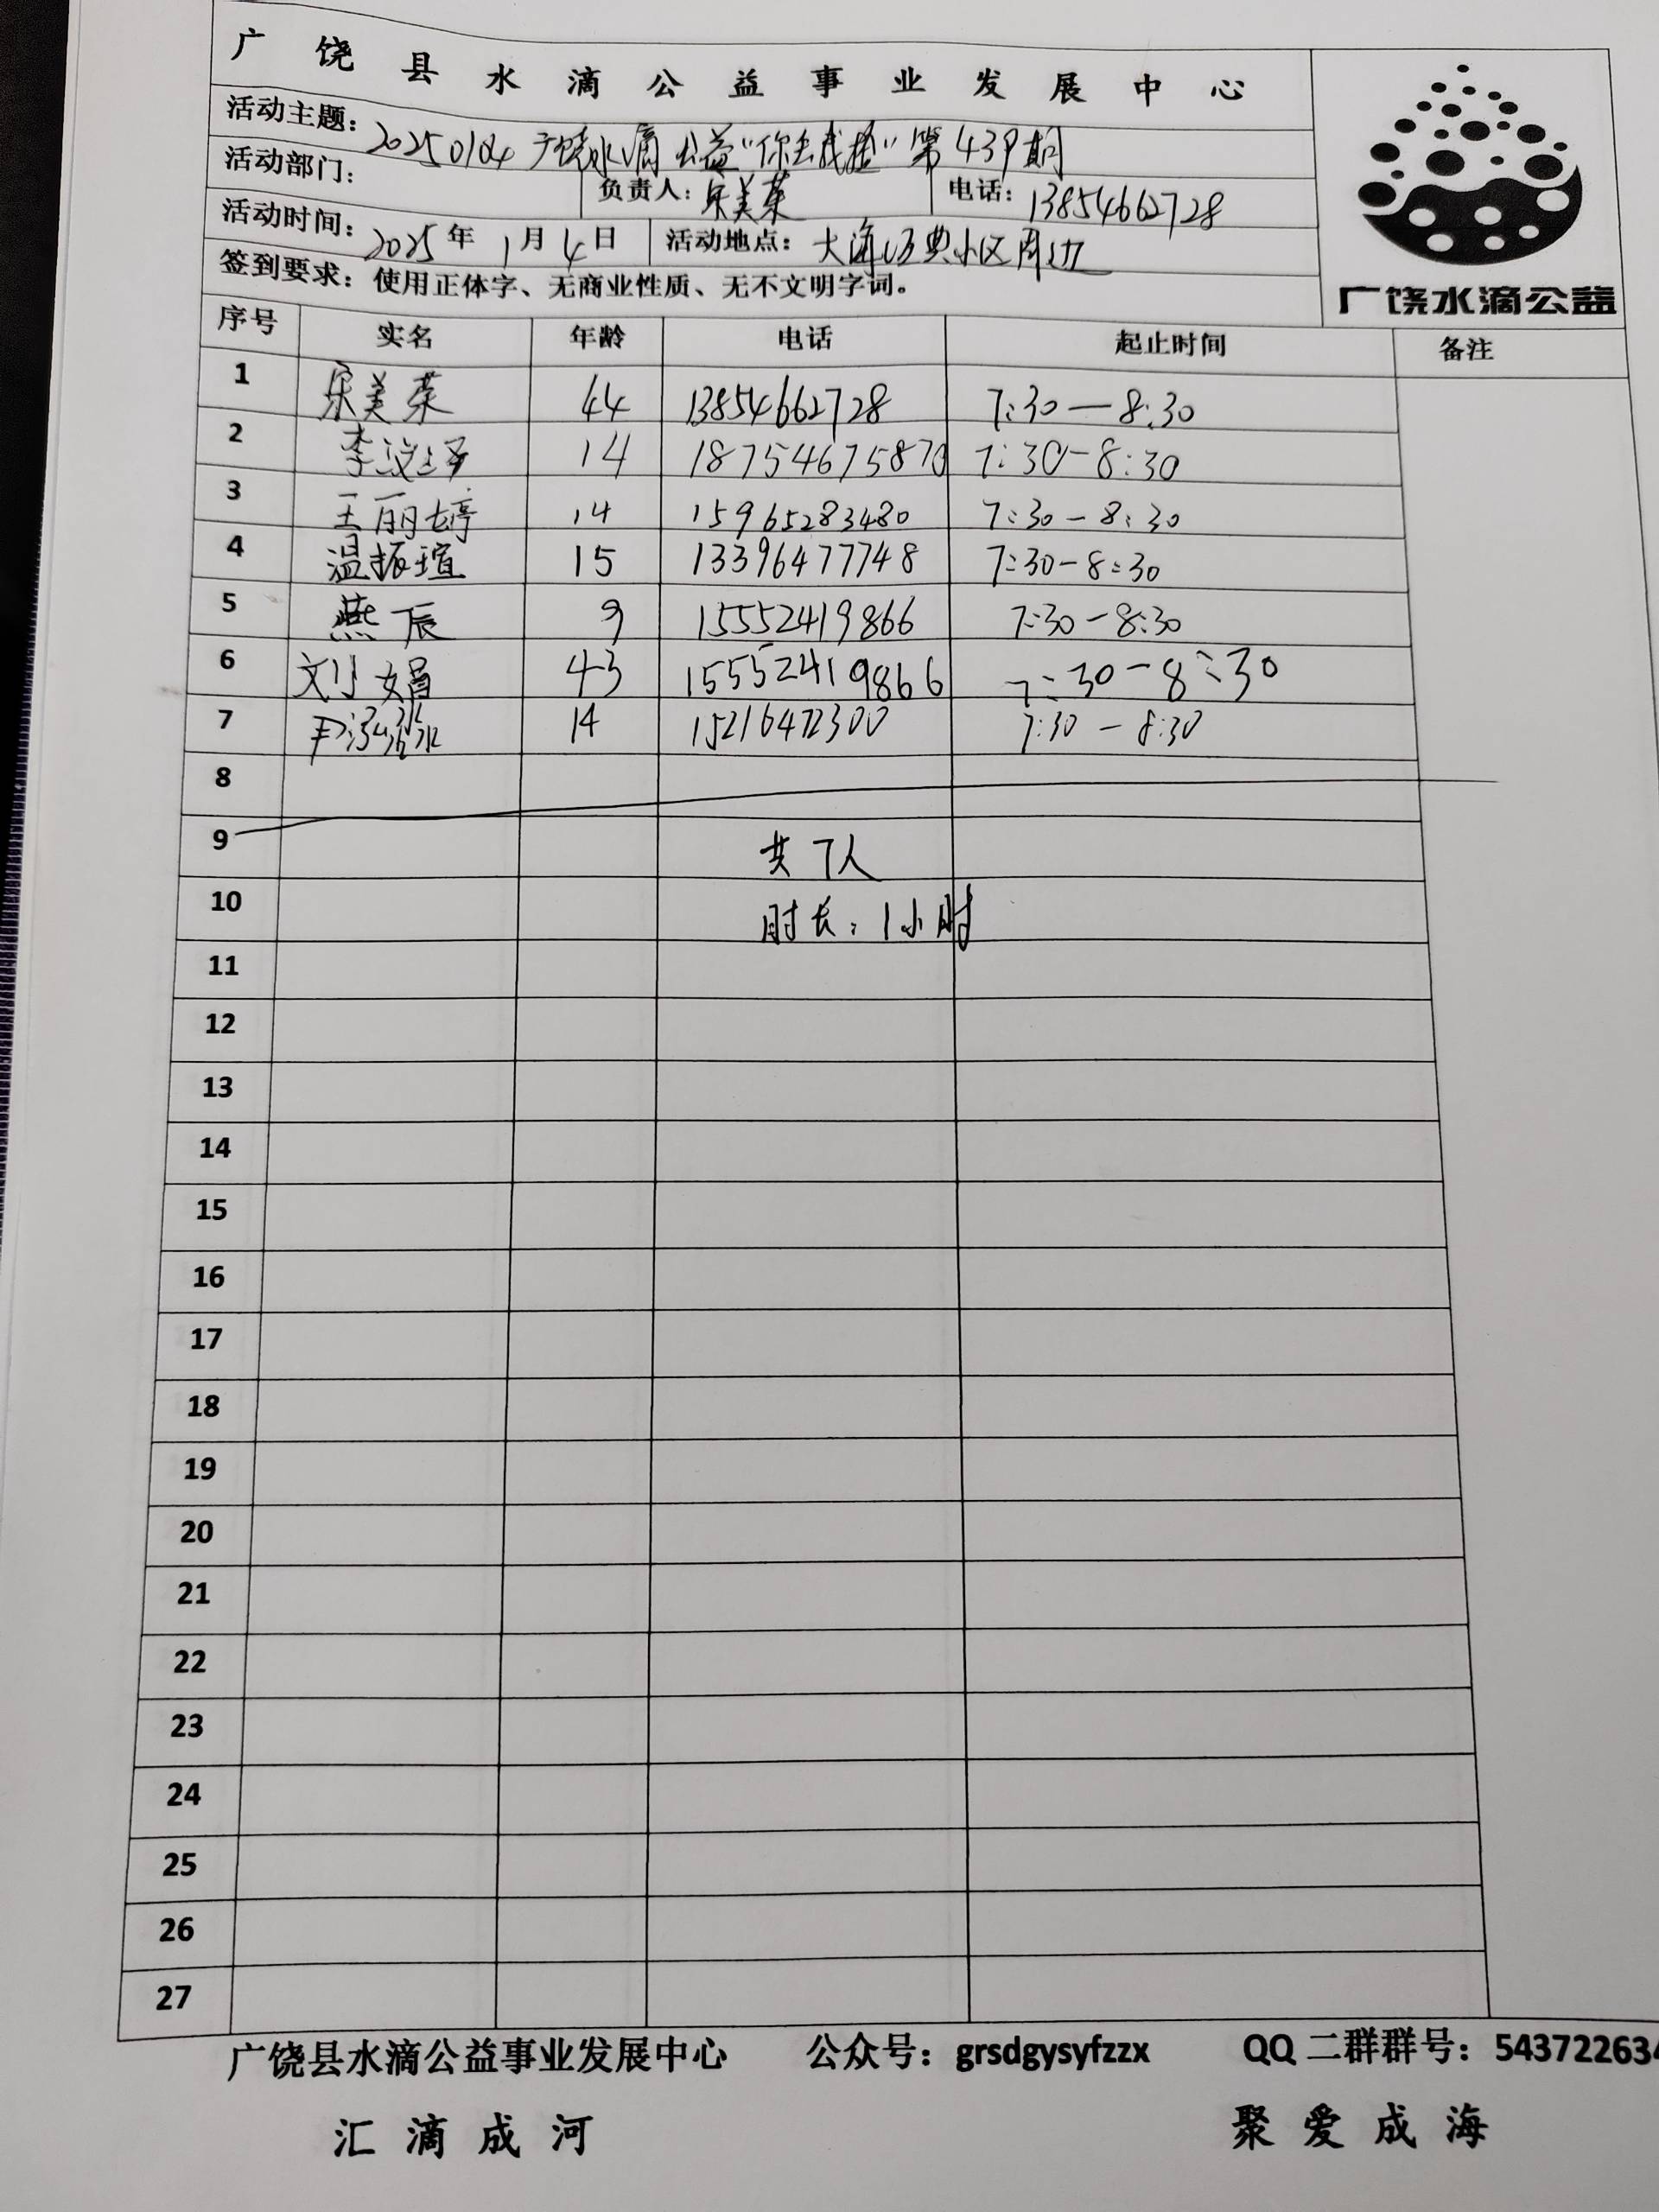 广饶县水滴公益事业发展中心
活动主题：20250104 广饶水滴公益“你丢我捡”第439期
活动部门： 负责人：宋美荣 电话：13854662728
活动时间：2025年1月4日 活动地点：大海经典小区周边
签到要求：使用正体字、无商业性质、无不文明字词。
广饶水滴公益
序号 实名 年龄 电话 起止时间 备注
1 宋美荣 44 13854662728 7:30—8:30
2 李汶泽 14 18754675870 7:30-8:30
3 王丽婷 14 15965283480 7:30-8:30
4 温振瑄 15 13396477748 7:30-8:30
5 燕辰 9 15552419866 7:30-8:30
6 刘娟 43 15552419866 7:30-8:30
7 尹 14 15216472300 7:30-8:30
8
9 共7人
10 时长：1小时
11
12
13
14
15
16
17
18
19
20
21
22
23
24
25
26
27
广饶县水滴公益事业发展中心 公众号：grsdgysyfzzx QQ二群群号：54372263
汇滴成河 聚爱成海